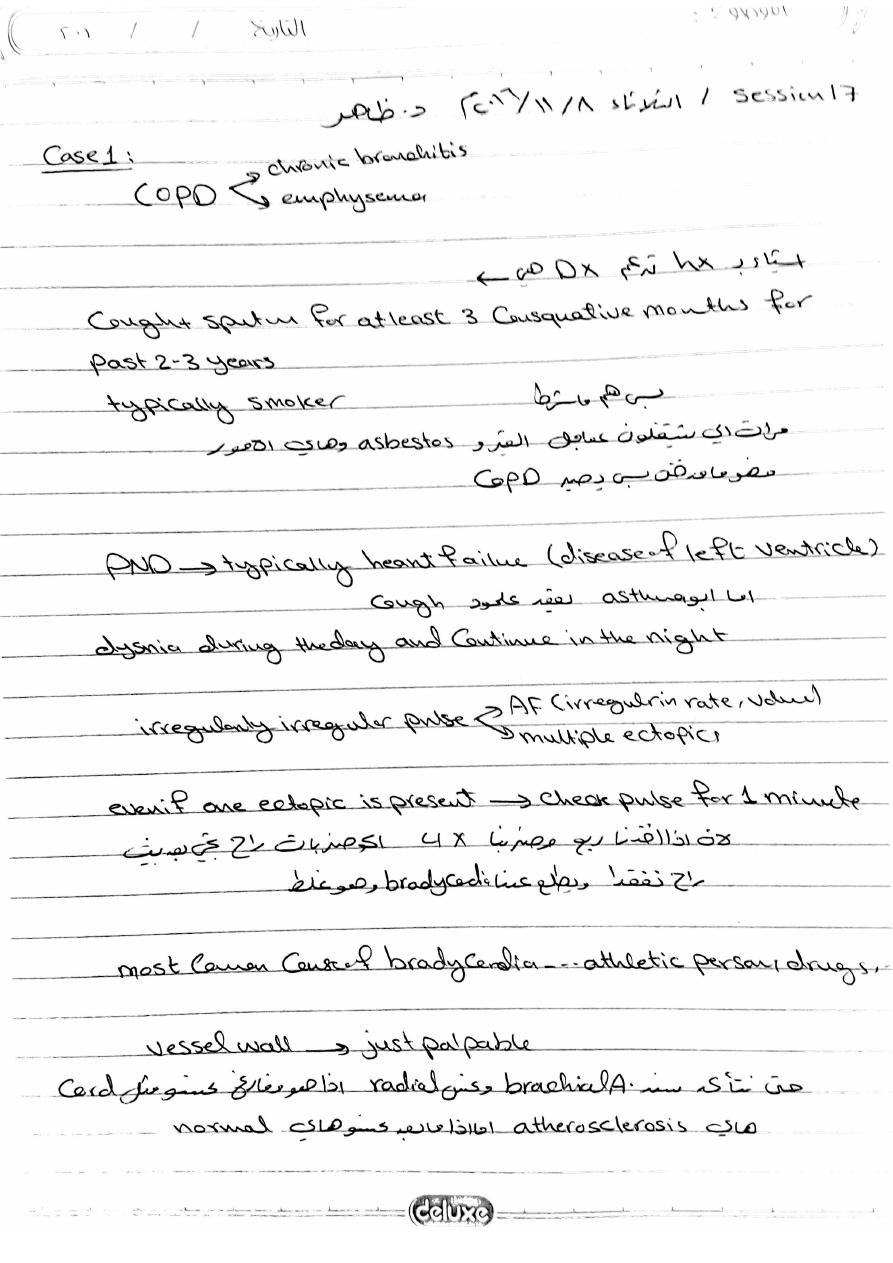 التاريخ / / ٢٠١
Session 17 / الثلاثاء ٢٠١٦/١١/٨ د. ظاهر
Case 1:
COPD → chronic bronchitis
→ emphysema
hx تدعم Dx هي ←
Cought sputum for atleast 3 Consquative months for
past 2-3 years
typically smoker بس هم مو شرط
مرات الي يشتغلون asbestos وهاي الامور
بس يصير COPD
PND → typically heart failue (disease of left ventricle)
اما ابو asthma يقعد cough
dysnia during the day and Continue in the night
irregularly irregular pulse → AF (irregulr in rate, volume)
→ multiple ectopics
even if one ectopic is present → check pulse for 1 minute
لان اذا اخذنا ربع وضربنا x 4 الضربات راح
راح نفقدها ويطلع عدنا bradycardia وهو غلط
most Common Cause of bradycardia --- athletic person, drugs,
vessel wall → just palpable
حتى نتأكد brachial A. وعلى radial اذا مثل Cord
هاي atherosclerosis اما اذا هاي normal
deluxe